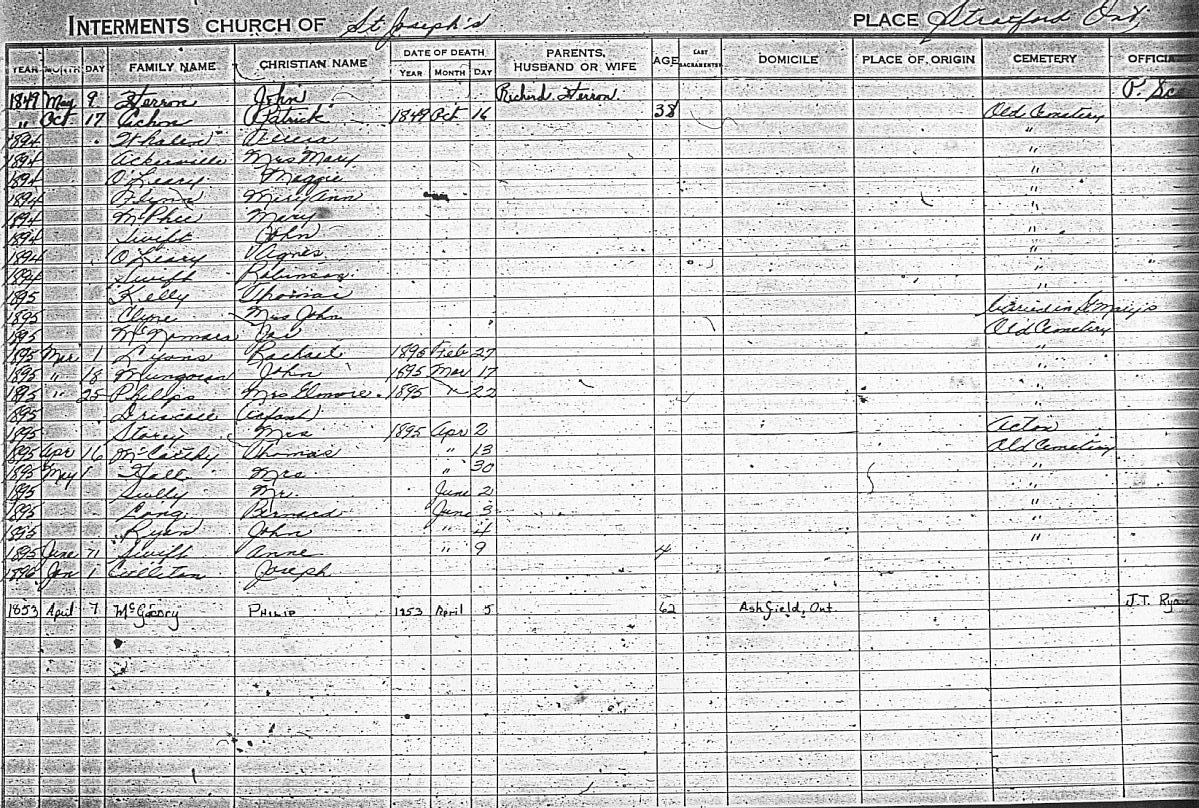 INTERMENTS CHURCH OF St Joseph's PLACE Stratford Ont,
YEAR MONTH DAY FAMILY NAME CHRISTIAN NAME DATE OF DEATH YEAR MONTH DAY PARENTS, HUSBAND OR WIFE AGE LAST SACRAMENTS DOMICILE PLACE OF ORIGIN CEMETERY
1849 May 9 Herron John Richard Herron. P.
" Oct 17 Patrick 1849 Oct 16 38 Old Cemetery
1894 Whalen "
1894 Mrs Mary "
1894 O'Leary Maggie "
1894 Flynn Mary Ann "
1894 McPhee Mary "
1894 Swift John "
1894 O'Leary Agnes "
1894 Swift Robinson "
1895 Kelly Thomas "
1895 Clyne Mrs John buried in St Mary's
1895 McNamara Old Cemetery
1895 Mar 1 Lyons Rachael 1895 Feb 27 "
1895 " 18 John 1895 Mar 17 "
1895 " 25 Phelps Mrs Elmore 1895 " 22 "
1895 Driscoll (infant) "
1895 Storey Mrs 1895 Apr 2 Acton
1895 Apr 16 McCarthy Thomas " 13 Old Cemetery
1895 May 1 Hall Mrs " 30 "
1895 Scully Mr. June 2 "
1895 Long Bernard June 3 "
1895 Ryan John " 4 "
1895 June 11 Swift Anne " 9 4
1896 Jan 1 Culliton Joseph
1853 April 7 McGoory PHILIP 1853 April 5 62 Ashfield, Ont. J.T. Ryan